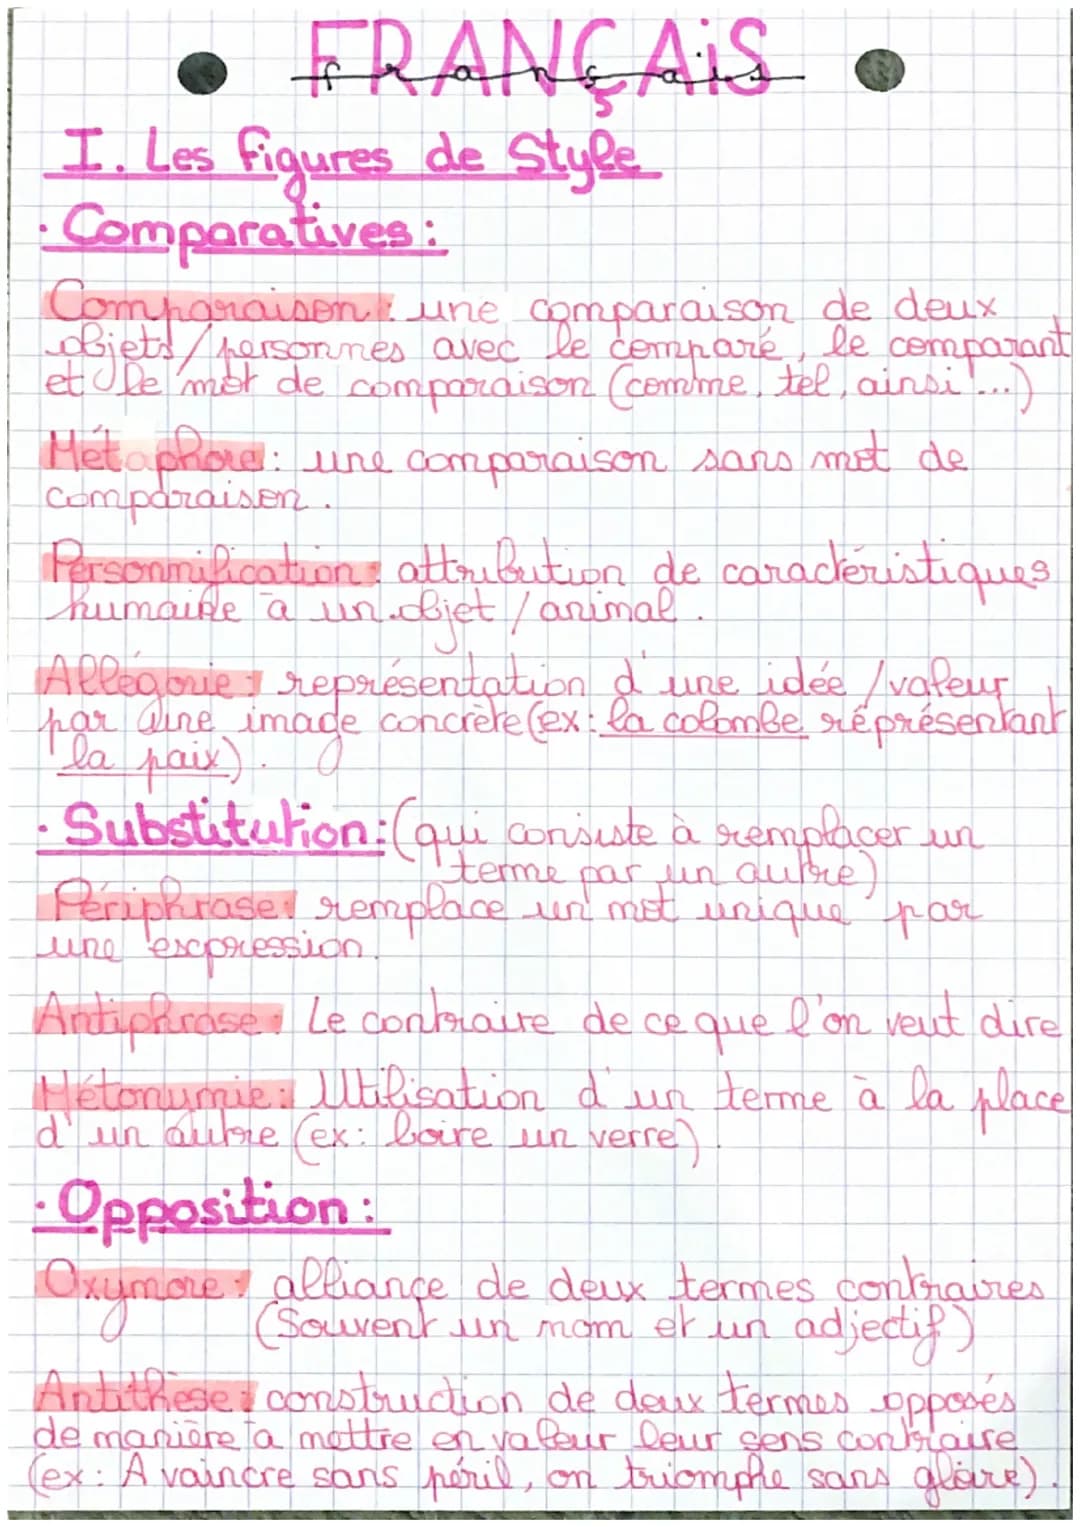 FRANÇAiS
français
I. Les figures de Style
· Comparatives :
Comparaison : une comparaison de deux
objets / personnes avec le comparé, le comparant
et le mot de comparaison (comme, tel, ainsi...)
Métaphore : une comparaison sans mot de
comparaison.
Personnification : attribution de caractéristiques
humaine à un objet / animal.
Allégorie : représentation d'une idée / valeur
par une image concrète (ex : la colombe réprésentant
la paix).
· Substitution : (qui consiste à remplacer un
terme par un autre)
Périphrase : remplace un mot unique par
une expression.
Antiphrase : Le contraire de ce que l'on veut dire
Métonymie : Utilisation d'un terme à la place
d'un autre (ex : boire un verre).
· Opposition :
Oxymore : alliance de deux termes contraires
(Souvent un nom et un adjectif)
Antithèse : construction de deux termes opposés
de manière à mettre en valeur leur sens contraire
(ex : A vaincre sans péril, on triomphe sans gloire).